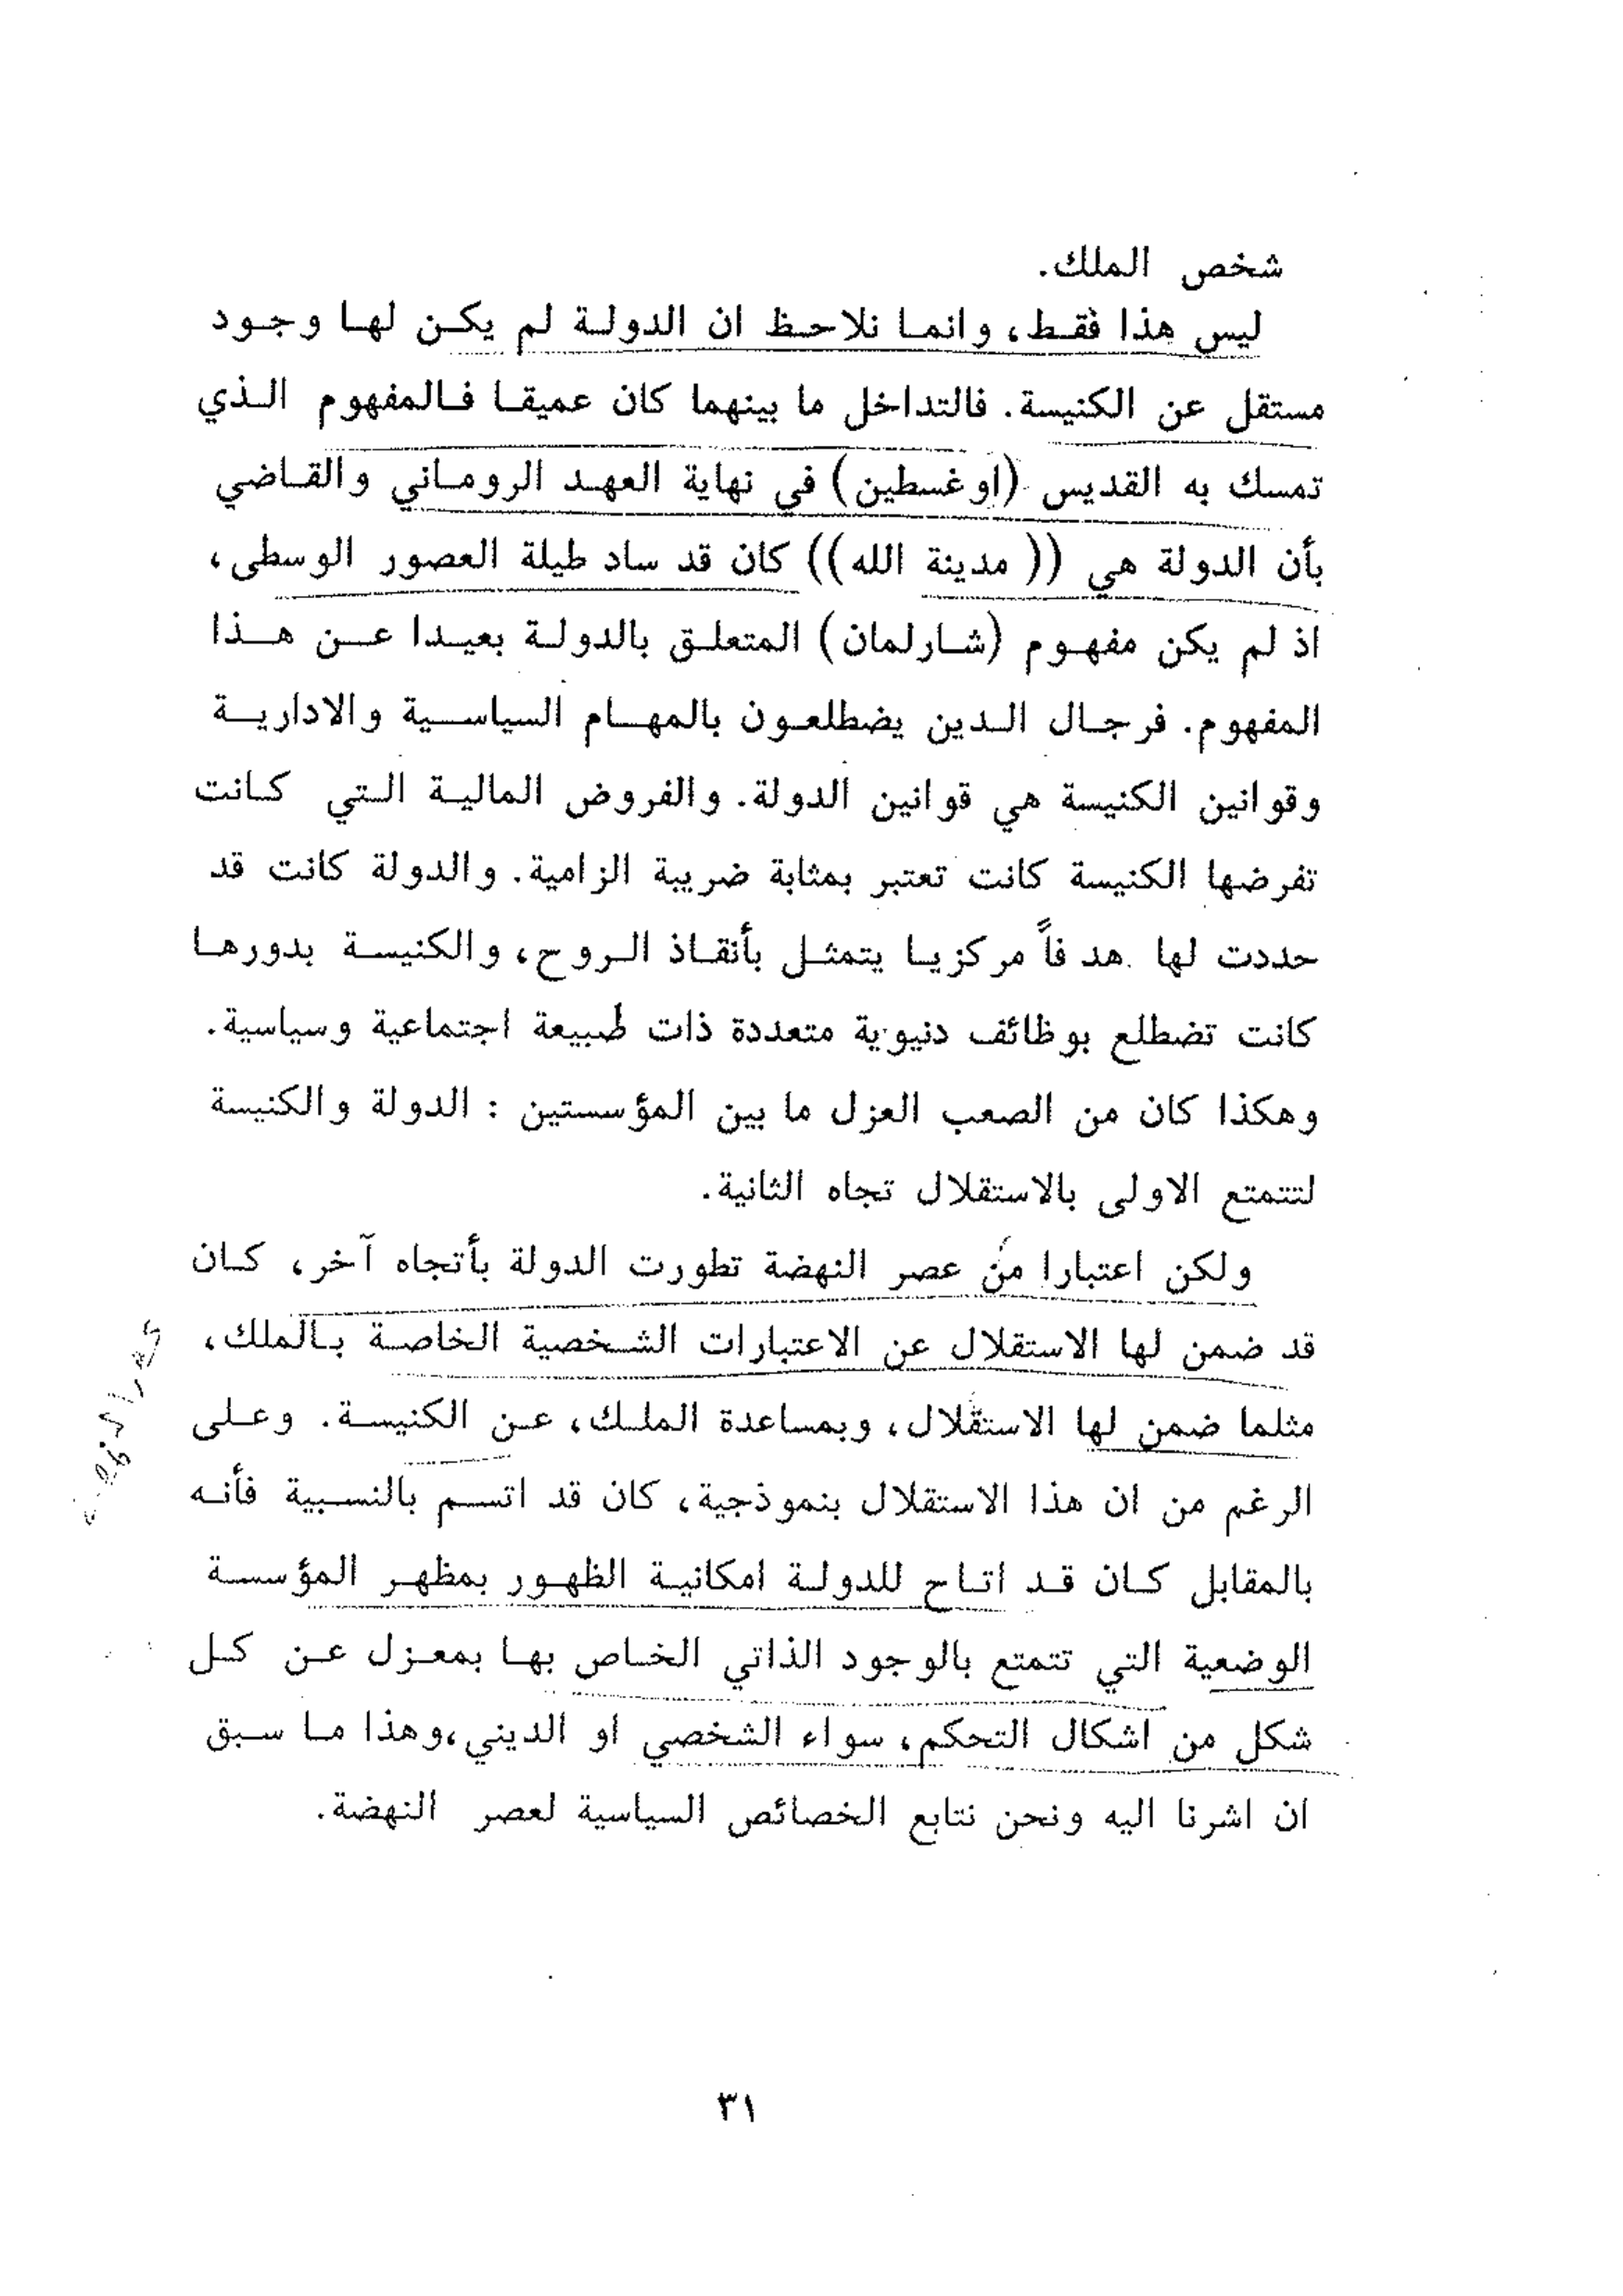 شخص الملك.
ليس هذا فقط، وانما نلاحظ ان الدولة لم يكن لها وجود
مستقل عن الكنيسة. فالتداخل ما بينهما كان عميقا فالمفهوم الذي
تمسك به القديس (اوغسطين) في نهاية العهد الروماني والقاضي
بأن الدولة هي (( مدينة الله)) كان قد ساد طيلة العصور الوسطى،
اذ لم يكن مفهوم (شارلمان) المتعلق بالدولة بعيدا عن هذا
المفهوم. فرجال الدين يضطلعون بالمهام السياسية والادارية
وقوانين الكنيسة هي قوانين الدولة. والفروض المالية التي كانت
تفرضها الكنيسة كانت تعتبر بمثابة ضريبة الزامية. والدولة كانت قد
حددت لها هدفاً مركزيا يتمثل بأنقاذ الروح، والكنيسة بدورها
كانت تضطلع بوظائف دنيوية متعددة ذات طبيعة اجتماعية وسياسية.
وهكذا كان من الصعب العزل ما بين المؤسستين : الدولة والكنيسة
لتتمتع الاولى بالاستقلال تجاه الثانية.
ولكن اعتبارا من عصر النهضة تطورت الدولة بأتجاه آخر، كان
قد ضمن لها الاستقلال عن الاعتبارات الشخصية الخاصة بالملك،
مثلما ضمن لها الاستقلال، وبمساعدة الملك، عن الكنيسة. وعلى
الرغم من ان هذا الاستقلال بنموذجية، كان قد اتسم بالنسبية فأنه
بالمقابل كان قد اتاح للدولة امكانية الظهور بمظهر المؤسسة
الوضعية التي تتمتع بالوجود الذاتي الخاص بها بمعزل عن كل
شكل من اشكال التحكم، سواء الشخصي او الديني،وهذا ما سبق
ان اشرنا اليه ونحن نتابع الخصائص السياسية لعصر النهضة.
٣١